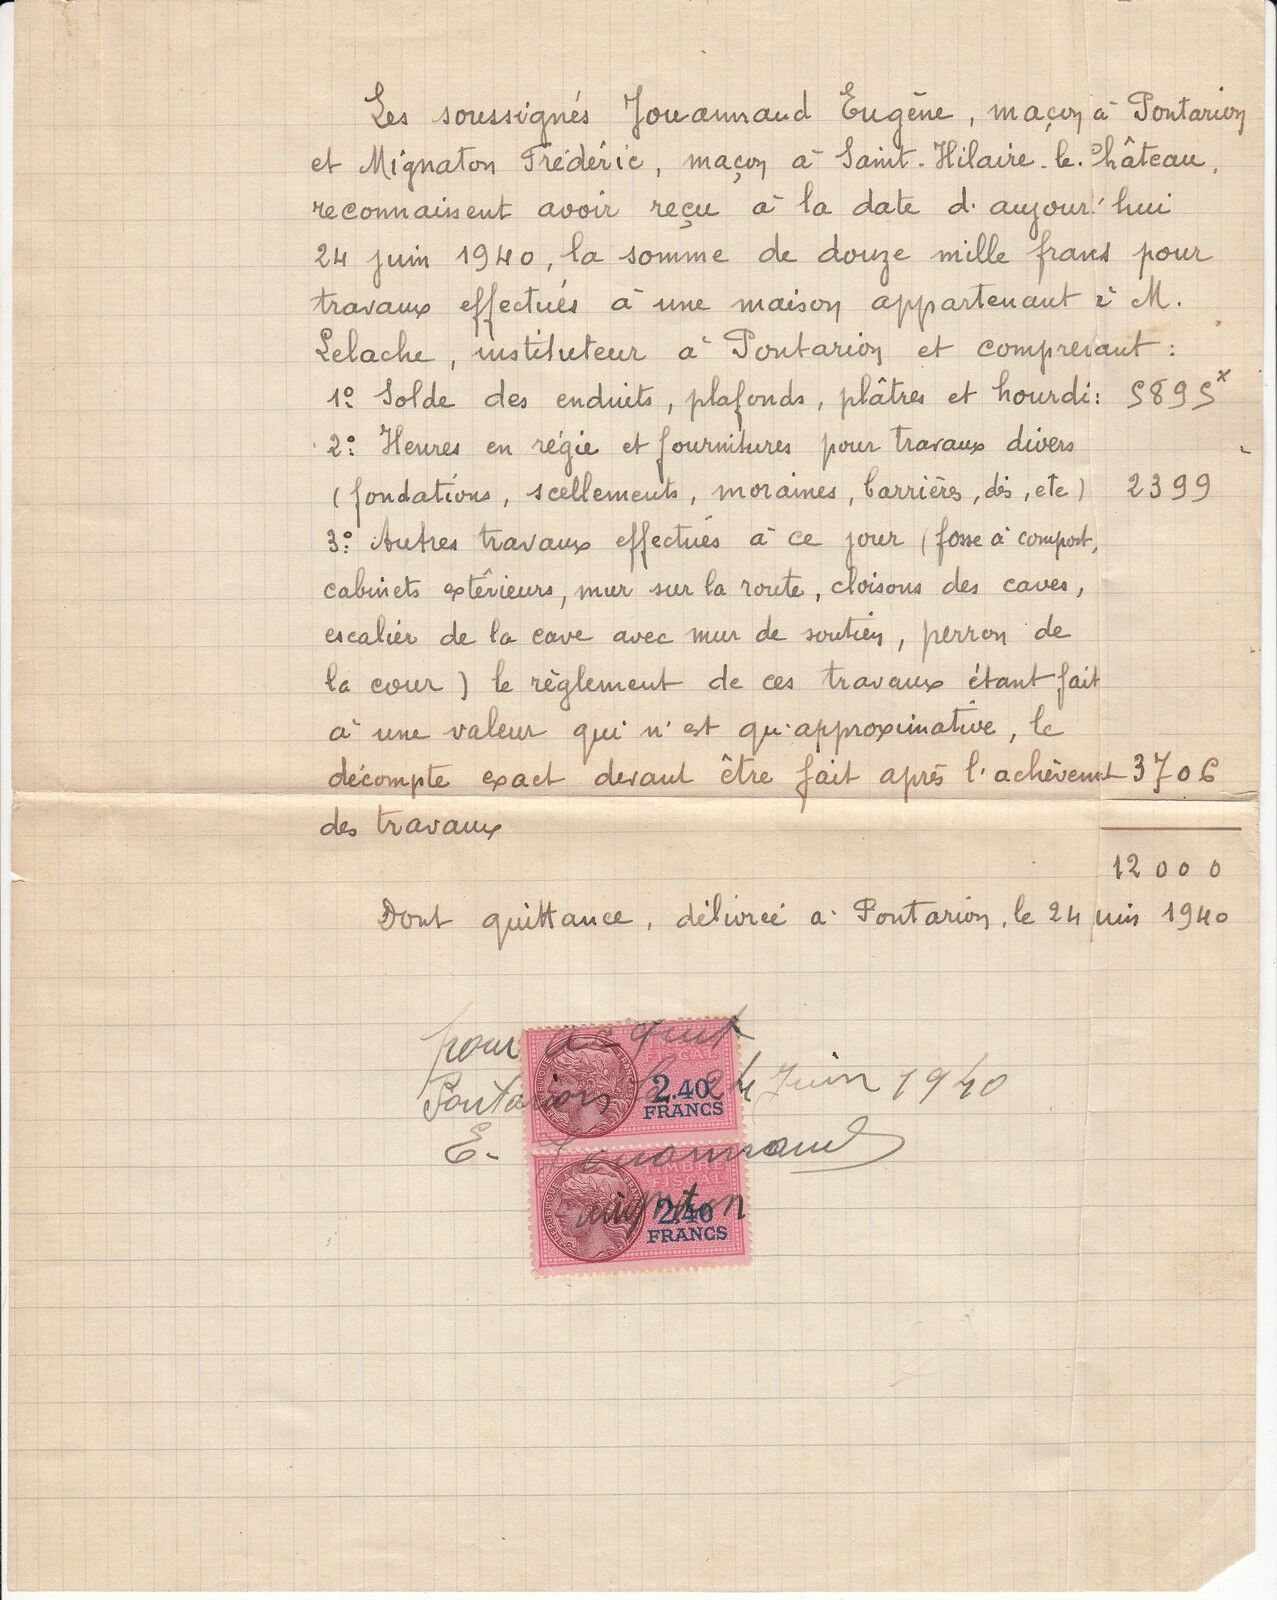 Les soussignés Jouannaud Eugène, maçon à Pontarion
et Mignaton Frédéric, maçon à Saint-Hilaire-le-Château,
reconnaissent avoir reçu à la date d'aujour'hui
24 juin 1940, la somme de douze mille francs pour
travaux effectués à une maison appartenant à M.
Lelache, instituteur à Pontarion et comprenant :
1° Solde des enduits, plafonds, plâtres et hourdi: 5895
2° Heures en régie et fournitures pour travaux divers
(fondations, scellements, moraines, barrières, dés, etc) 2399
3° Autres travaux effectués à ce jour (fosse à compost,
cabinets extérieurs, mur sur la route, cloisons des caves,
escalier de la cave avec mur de soutien, perron de
la cour) le règlement de ces travaux étant fait
à une valeur qui n'est qu'approximative, le
décompte exact devant être fait après l'achèvemt 3706
des travaux
12000
Dont quittance, délivrée à Pontarion, le 24 juin 1940
pour acquit
FISCAL
Pontarion le 24 Juin 1940
2.40
FRANCS
E. Jouannaud
TIMBRE
FISCAL
2.40
FRANCS